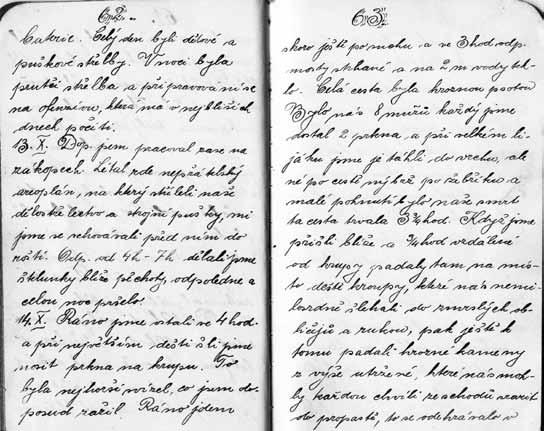 62.
baterie. Celý den byli dělové a
puškové střelby. V noci byla
prutší střelba a připravovaní se
na ofenzivu, která má v nejbližších
dnech počíti.
13. X. Dop. jsem pracoval zase na
zákopech. Létal zde nepřátelský
areoplán, na který stříleli naše
dělostřelectvo a strojní pušky, mi
jsme se schovávali před ním do
roští. Odp. od 4h - 7h dělali jsme
štklunky blíže pěchoty, odpoledne a
celou noc pršelo.
14. X. Ráno jsme stali ve 4 hod.
a při největším dešti šli jsme
nosit prkna na krupu. To
byla nejhorší co jsem do-
posud zažil. Ráno jdem
63.
skoro ještě po mohu a ve 3 hod odp.
mosty strhané a na m vody tek-
lo. Celá cesta byla hroznou psotou
Bylo nás 8 mužů každý jsme
dostal 2 prkna, a při velkém li-
jáku jsme je táhli do vrchu, ale
né po cestě nýbrž po žebříku a
malé pohnutí bylo naše smrt
ta cesta trvala 3¾ hod. Když jsme
přišli blíže a ¾ hod vzdálení
od krupy padaly tam na mís-
to deště kroupy, které nás nemi-
losrdně šlehali do zmrzlých ob-
ličejů a rukou, pak ještě k
tomu padali hrozné kameny
z výše utržené, které nás moh-
ly každou chvíli ze schodů srazit
do propasti, to se odehrávalo v